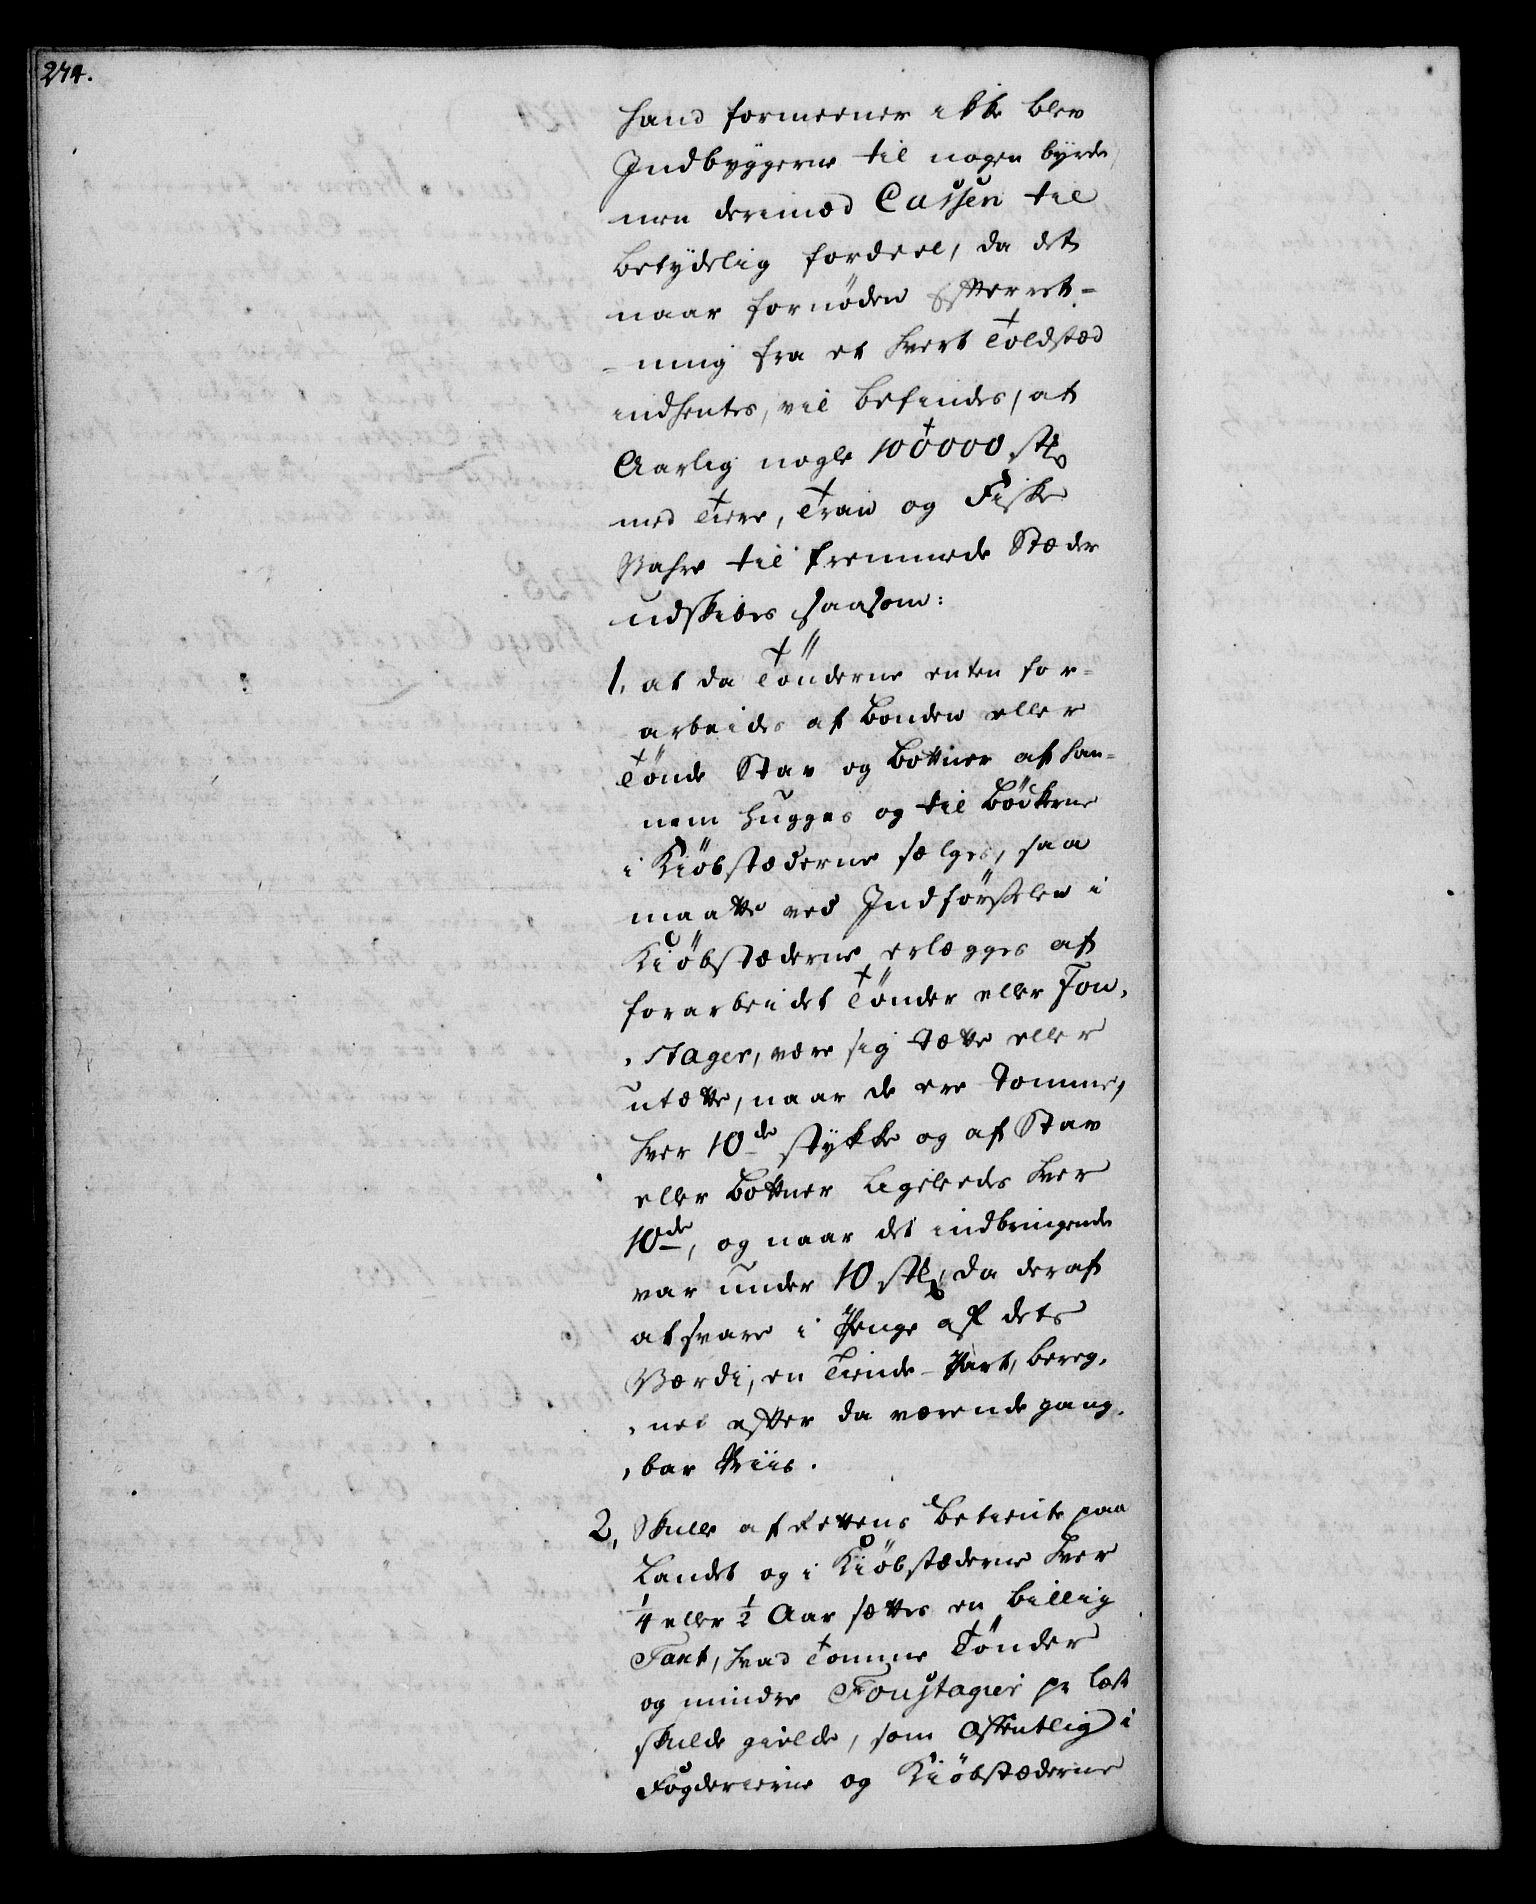 274.
hand formeener ikke blev
Indbyggerne til nogen byrde,
men derimod Cassen til
betydelig fordeel, da det
naar fornöden Efterret-
-ning fra et hvert Toldsted
indhentes, vil befindes, at
Aarlig nogle 100000 stk
med Tiere, Tran og Fiske
Vahre til fremmede Stæder
udskibes saasom:
1, at da Tönderne enten for-
arbeides af Bonden eller
Tönde Stav og Bottner af ham-
nem hugges og til Bödkerne
i Kiöbstæderne sælges, saa
maatte ved Indförselen i
Kiöbstæderne erlægges af
forarbeidet Tönder eller Fou-
-stager, være sig tætte eller
utætte, naar de ere Tomme,
hver 10de stykke og af Stav
eller Bottner ligeleedes hver
10de, og naar det indbringende
var under 10 stk, da deraf
at svare i Penge af dets
Værdi, en Tiende-Part, bereg-
-net efter da værende gang-
-bar Priis.
2, Skulle af Rettens Betiente paa
Landet og i Kiöbstæderne hver
1/4 eller 1/2 Aar sættes en billig
Taxt, hvad Tomme Tönder
og mindre Foustager pr læst
skulde gielde, som offentlig i
Fogderierne og Kiöbstæderne